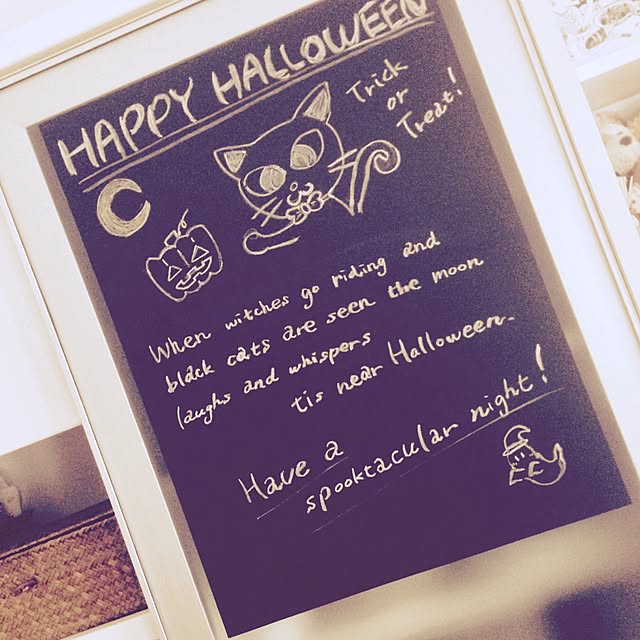 HAPPY HALLOWEEN
Trick
or
Treat!
When witches go riding and
black cats are seen the moon
laughs and whispers
tis near Halloween.
Have a
spooktacular night!